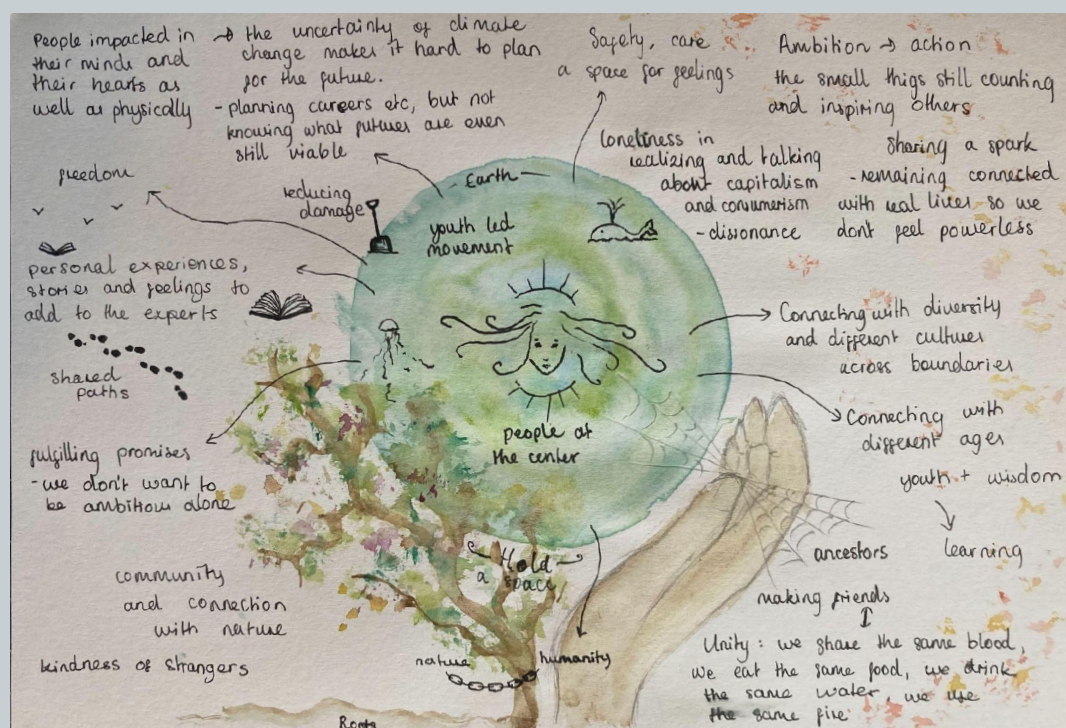 People impacted in
their minds and
their hearts as
well as physically
→ the uncertainty of climate
change makes it hard to plan
for the future.
- planning careers etc, but not
knowing what futures are even
still viable
Safety, care
a space for feelings
Ambition → action
the small thigs still counting
and inspiring others
loneliness in
realizing and talking
about capitalism
and consumerism
- dissonance
Sharing a spark
- remaining connected
with real lives so we
don't feel powerless
freedom
reducing
damage
Earth
youth led
movement
personal experiences,
stories and feelings to
add to the experts
shared
paths
people at
the center
Connecting with diversity
and different cultures
across boundaries
Connecting with
different ages
youth + wisdom
learning
fulfilling promises
- we don't want to
be ambitious alone
Hold
a space
ancestors
making friends
community
and connection
with nature
kindness of strangers
nature
humanity
Unity: we share the same blood,
we eat the same food, we drink
the same water, we use
the same fire
Roots